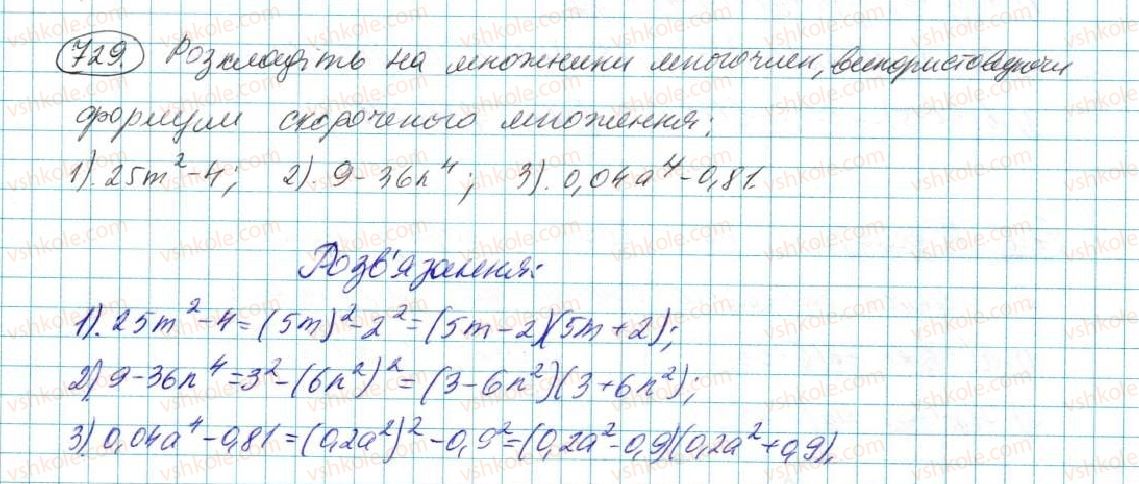 729. Розкладіть на множники многочлен, використовуючи
формули скороченого множення:
1). 25m² - 4; 2). 9 - 36n⁴; 3). 0,04a⁴ - 0,81.
Розв'язання:
1). 25m² - 4 = (5m)² - 2² = (5m - 2)(5m + 2);
2) 9 - 36n⁴ = 3² - (6n²)² = (3 - 6n²)(3 + 6n²);
3) 0,04a⁴ - 0,81 = (0,2a²)² - 0,9² = (0,2a² - 0,9)(0,2a² + 0,9).
vshkole.com